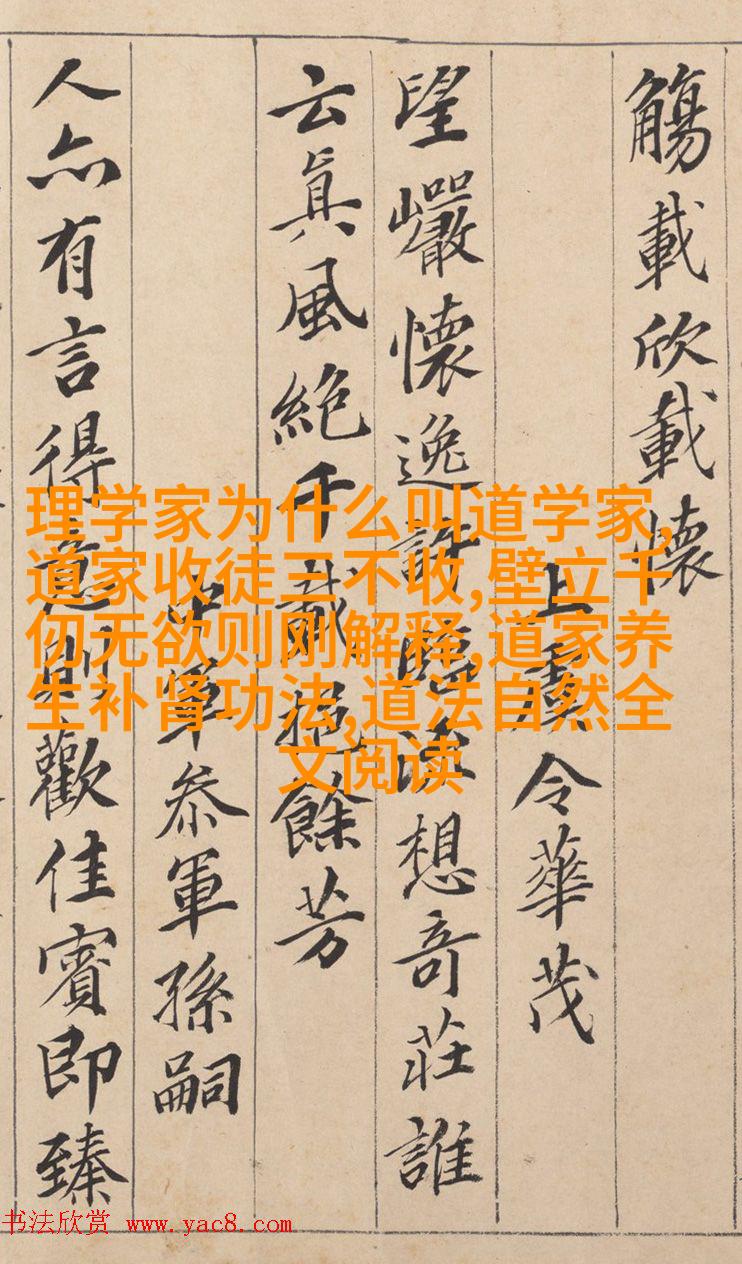 觴載欣載懷
上虞令華茂
望巖懷逸許臨流想奇莊誰
云真風絕千載挹餘芳
中軍叅軍孫嗣
人亦有言得意則歡佳賓即臻
理学家为什么叫道学家,
道家收徒三不收,壁立千
仞无欲则刚解释,道家养
生补肾功法,道法自然全
文阅读
书法欣赏 www.yac8.com